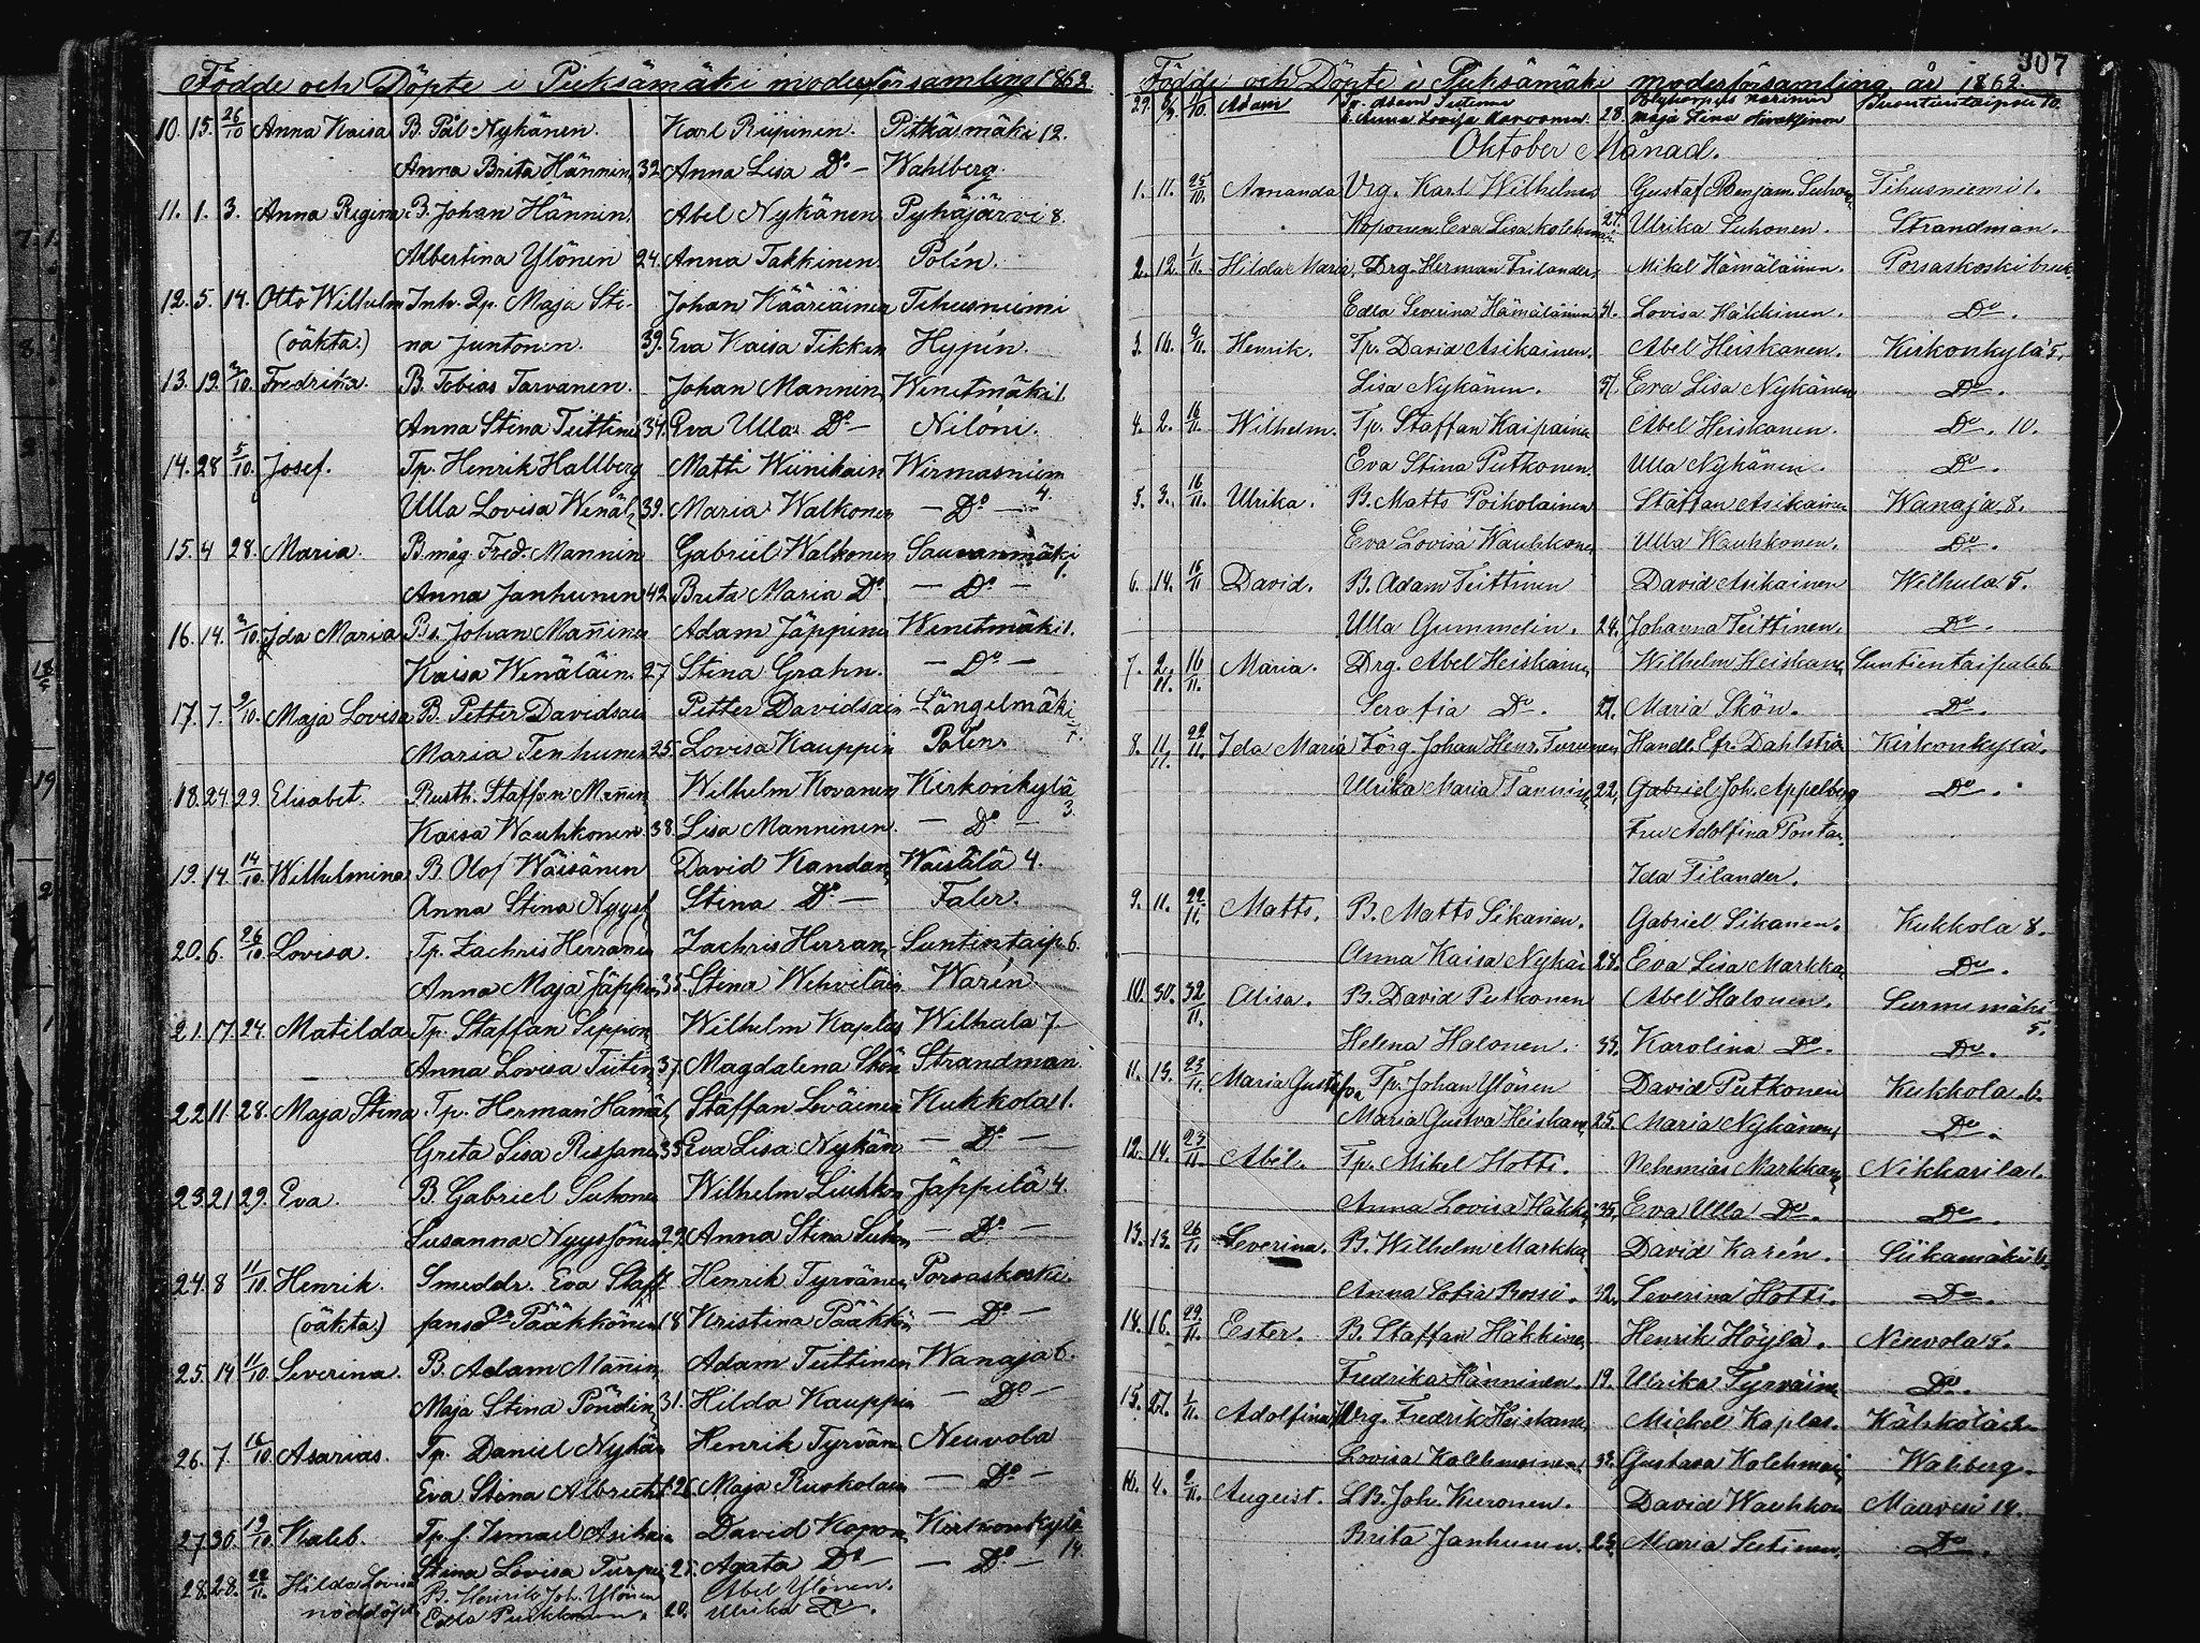 Födde och Döpte i Pieksämäki moderförsamling 1862.
10. 15. 26/10 Anna Kaisa B. Pål Nykänen. Karl Riipinen. Pitkämäki 12.
Anna Brita Hännin, 32 Anna Lisa Do - Wahlberg.
11. 1. 3. Anna Regina B. Johan Hännin. Abel Nykänen Pyhäjärvi 8.
Albertina Ylönen 24. Anna Takkinen Polén.
12. 5. 14. Otto Wilhelm Inh. Qp. Maja Sti- Johan Kääriäinen Tihusniemi
(oäkta.) na Juntonen. 39. Eva Kaisa Tikkan Hypén.
13. 19. /10. Fredrika. B. Tobias Tarvanen. Johan Mannin Wenetmäki 1.
Anna Stina Tiittine 34. Eva Ulla Do - Niloni.
14. 28 5/10. Josef. Tp. Henrik Hallberg Matti Wiinikain Wirmasniem 4.
Ulla Lovisa Wenäl 39. Maria Walkonen - Do -
15. 4 28. Maria. B.måg Fred. Mannin Gabriel Walkonen Sauvanmäki 1.
Anna Janhunen 42 Brita Maria Do - Do -
16. 14. /10 Ida Maria B.s. Johan Mañinen Adam Jäppinen Wenetmäki 1.
Kaisa Wenäläin. 27 Stina Grahn. - Do -
17. 7. 9/10. Maja Lovisa B. Petter Davidsain Petter Davidsain Längelmäki 7.
Maria Tenhunen 25. Lovisa Kauppin Polen.
18. 24. 29. Elisabet. Rusth. Staffan Mañin Wilhelm Kovanen Kirkonkylä 3.
Kaisa Wauhkonen 38. Lisa Manninen. - Do -
19. 14. 14/10. Wilhelmina B. Olof Wäisänen David Kandan, Waistälä 4.
Anna Stina Nyys Stina Do - Faler.
20. 6. 26/10. Lovisa. Tp. Zachris Herranen Zachris Herran Suntintaip. 6.
Anna Maja Jäppin 35. Stina Wehviläin Warén
21. 17. 24. Matilda Tp. Staffan Seppon, Wilhelm Kaplas Wilhula 7.
Anna Lovisa Tiitin, 37. Magdalena Skön Strandman.
22 11. 28. Maja Stina Tp. Herman Hamäl Staffan Leväinen Kukkola 1.
Greta Lisa Rissane 35 Eva Lisa Nykän - Do -
23. 21 29. Eva. B. Gabriel Suhonen Wilhelm Liukkon Jäppilä 4.
Susanna Nyyssönen 22. Anna Stina Suhon - Do -
24. 8 11/10. Henrik. Smeddr. Eva Staff- Henrik Tyrvänen Porsaskoski.
(oäkta.) fansdr Pääkkönen 18 Kristina Pääkkön - Do -
25. 14 11/10. Severina. B. Adam Mañin Adam Tiittinen Wanaja 6.
Maja Stina Pöndin, 31. Hilda Kauppin - Do -
26. 7. 16/10. Asarias. Tp. Daniel Nykän Henrik Tyrvän Neuvola
Eva Stina Albrecht 26. Maja Ruokolain - Do -
27 30. 19/10. Kaleb. Tp. f. Ismael Asikain David Kopon Kirkonkylä 14.
Stina Lovisa Turpe 25. Agata Do - - Do -
28. 28. 22/11. Hilda Lovisa B. Henrik Joh. Ylönen Abel Ylönen.
nöddöpt. Edla Puikkonen. 20. Ulrika Do.
307
Födde och Döpte i Pieksämäki moderförsamling år 1862.
29. /10. Adam Tp. Adam Tutinen
h. Anna Lovisa Karvonen. 28. Maja Stina
Oktober Månad.
1. 11. 25/10. Amanda Drg. Karl Wilhelm Gustaf Benjam. Suhon, Tihusniemi 1.
Koponen, Eva Lisa Kolehmain 27. Ulrika Suhonen. Strandman.
2. 12. 1/11. Hilda Maria, Drg. Herman Frilander, Mikal Hämäläinen. Porsaskoski bruk
Edla Severina Hämäläinen 31. Lovisa Häkkinen. Do.
3. 16. 9/11. Henrik. Tp. David Asikainen. Abel Heiskanen. Kirkonkylä 5.
Lisa Nykänen. 37. Eva Lisa Nykänen Do.
4. 2. 16/11. Wilhelm. Tp. Staffan Kaipain Abel Heiskanen. Do. 10.
Eva Stina Putkonen. Ulla Nykänen. Do.
5. 3. 16/11. Ulrika. B. Matts Poikolainen Staffan Asikainen Wanaja 8.
Eva Lovisa Wauhkone Ulla Wauhkonen. Do.
6. 14. 16/11 David. B. Adam Teittinen David Asikainen Wilhula 5.
Ulla Gummelin. 24. Johanna Teittinen. Do.
7. 2/11. 16/11. Maria. Drg. Abel Heiskanen Wilhelm Heiskane Suntientaipale 6.
Serafia Do. 27. Maria Skön. Do.
8. 11/11. 22/11. Ida Maria Förg. Johan Henr. Turunen Handl. Efr. Dahlströ Kirkonkylä.
Ulrika Maria Tanninen 22, Gabriel Joh. Appelberg Do.
Fru Adolfina Ponta
Ida Filander.
9. 11. 22/11. Matts. B. Matts Sikanen. Gabriel Sikanen. Kukkola 8.
Anna Kaisa Nykä 28. Eva Lisa Markka Do.
10. 30. /11. Alisa. B. David Putkonen Abel Halonen. Surnumäki 5.
Helena Halonen. 39. Karolina Do. Do.
11. 13. 23/11. Maria Gustafva Tp. Johan Ylönen David Putkonen Kukkola 6.
Maria Gustva Heiskan 25. Maria Nykänen Do.
12. 14. 23/11. Abel. Tp. Mikel Hotti. Nehemias Markkan Nikkarila 1.
Anna Lovisa Häkk 35. Eva Ulla Do. Do.
13. 13. 26/11. Severina. B. Wilhelm Markka David Karén. Siikamäki 6.
Anna Sofia Rossi. 32. Severina Hotti. Do.
14. 16. 29/11. Ester. B. Staffan Häkkinen Henrik Höylä. Neuvola 5.
Fredrika Hänninen. 19. Ulrika Tyrväin Do.
15. 27. 1/11. Adolfina Drg. Fredrik Heiskanen Mickel Kaplas.
Lovisa Kolehmainen 32. Gustava Kolehmain Walberg.
16. 4. 2/11. August. L.B. Joh. Kuronen. David Wauhkon Maavesi 14.
Brita Janhunen. 23. Maria Sutinen. Do.